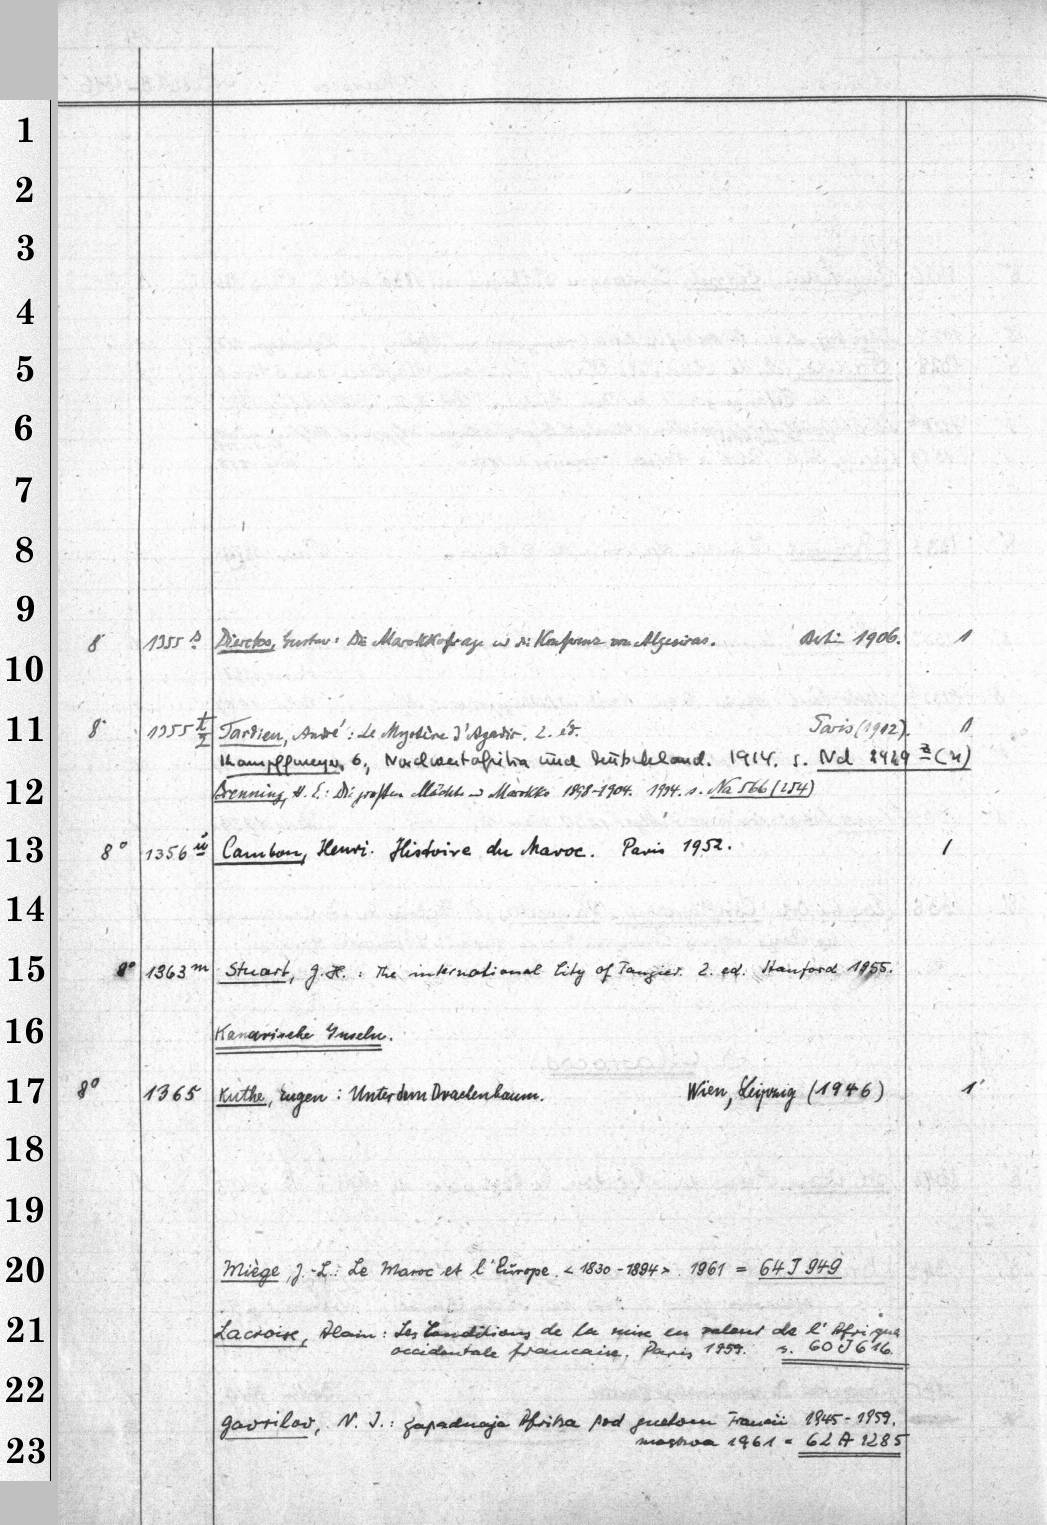 1
2
3
4
5
6
7
8
9
8° 1355 s Diercks, Gustav: Die Marokkofrage u die Konferenz von Algeciras. Berlin 1906. 1
10
11 8° 1355 t/2 Tardieu, André: Le Mystère d'Agadir. 2. éd. Paris (1912). 1
Kampffmeyer, G., Nordwestafrika und Deutschland. 1914. s. Nd 2429 (21)
12 Brenning, H. E.: Die großen Mächte u Marokko 1898-1904. 1934. s. Na 566 (254)
13 8° 1356 ü Cambon, Henri. Histoire du Maroc. Paris 1952. 1
14
15 8° 1363 m Stuart, G. H.: The international City of Tangier. 2. ed. Stanford 1955.
16 Kanarische Inseln.
17 8° 1365 Kuthe, Eugen: Unter dem Drachenbaum. Wien, Leipzig (1946) 1
18
19
20 Miège J.-L.: Le Maroc et l'Europe <1830-1894>. 1961 = 64 J 949
21 Lacroise, Alain: Les Conditions de la mise en valeur de l'Afrique
occidentale francaise. Paris 1959. s. 60 J 616.
22 Gavrilov, N. I.: Zapadnaja Afrika pod gnetom Francii 1945-1959.
23 Moskva 1961 = 62 A 1285